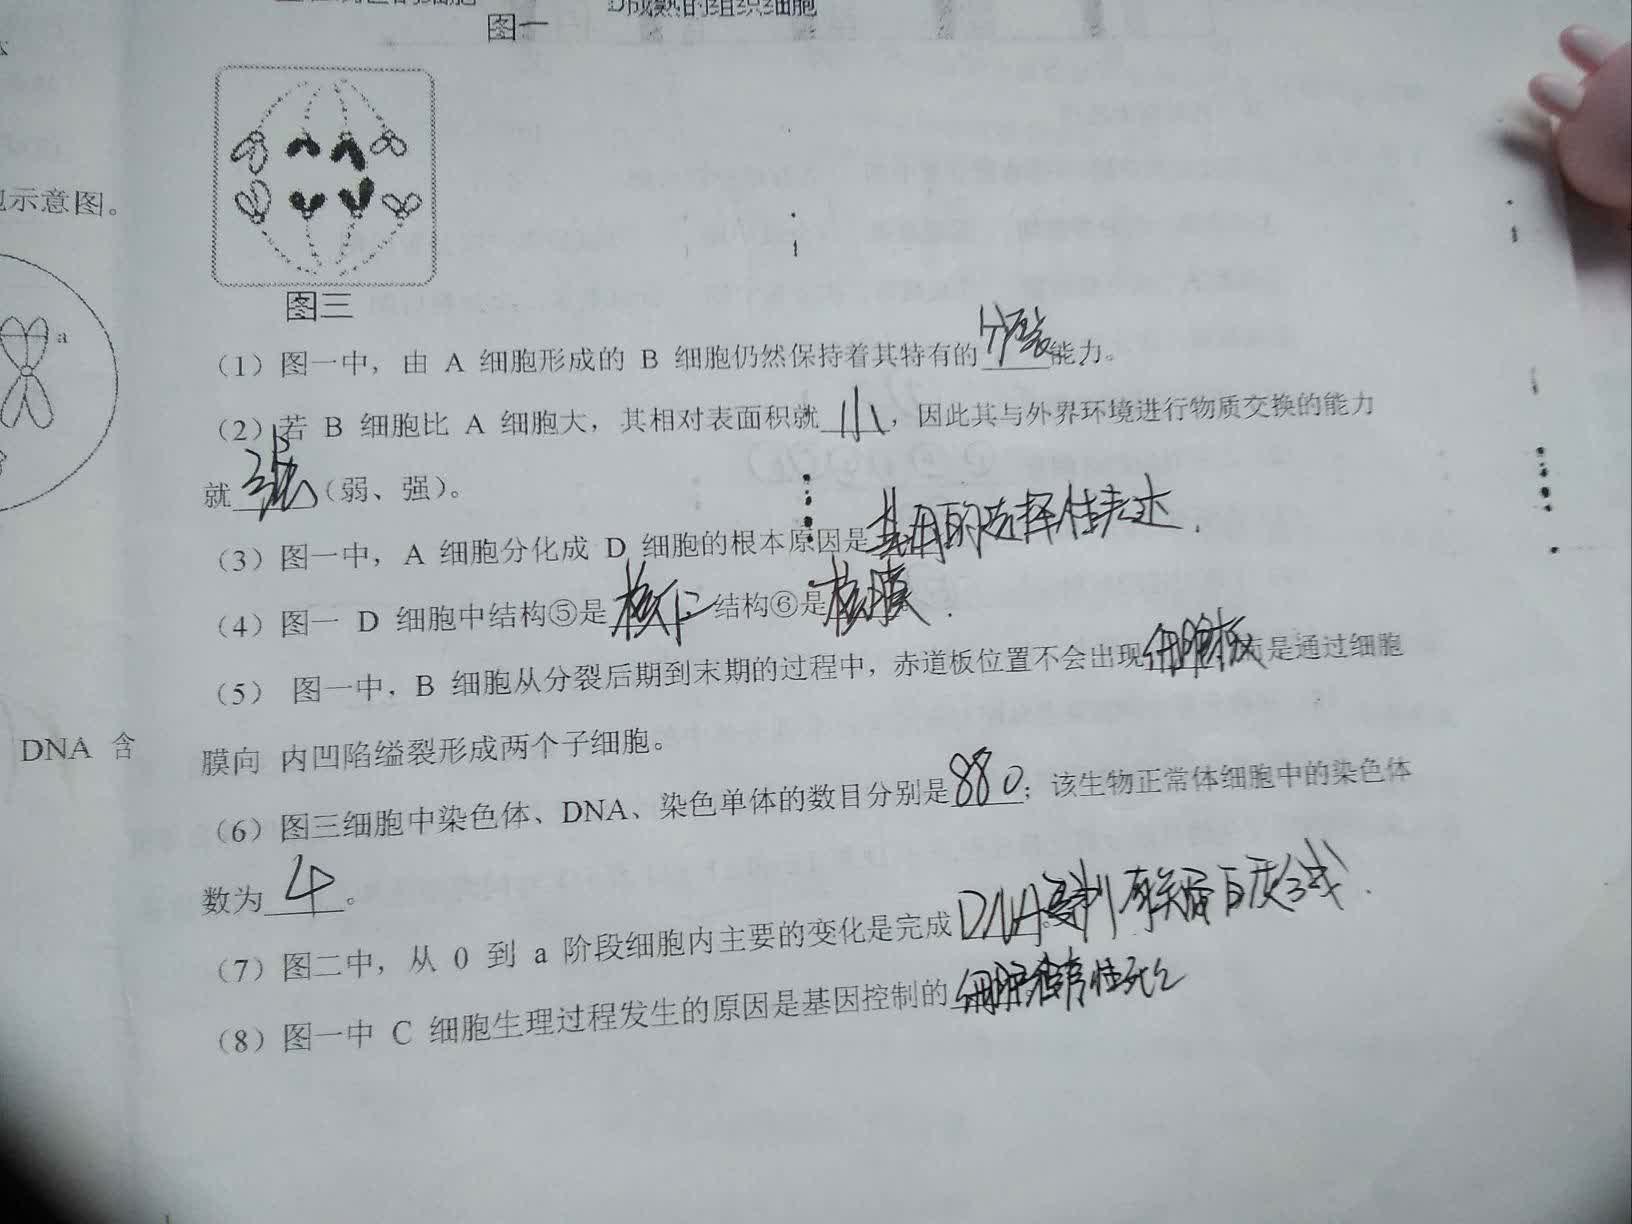 D成熟的组织细胞
图一
示意图。
a
图三
（1）图一中，由 A 细胞形成的 B 细胞仍然保持着其特有的分裂能力。
（2）若 B 细胞比 A 细胞大，其相对表面积就小，因此其与外界环境进行物质交换的能力
就弱（弱、强）。
（3）图一中，A 细胞分化成 D 细胞的根本原因是基因的选择性表达.
（4）图一 D 细胞中结构⑤是核仁 结构⑥是核膜.
（5） 图一中，B 细胞从分裂后期到末期的过程中，赤道板位置不会出现细胞板而是通过细胞
膜向 内凹陷缢裂形成两个子细胞。
（6）图三细胞中染色体、DNA、染色单体的数目分别是880；该生物正常体细胞中的染色体
数为4。
DNA 含
（7）图二中，从 0 到 a 阶段细胞内主要的变化是完成DNA复制有关蛋白质合成.
（8）图一中 C 细胞生理过程发生的原因是基因控制的细胞程序性死亡